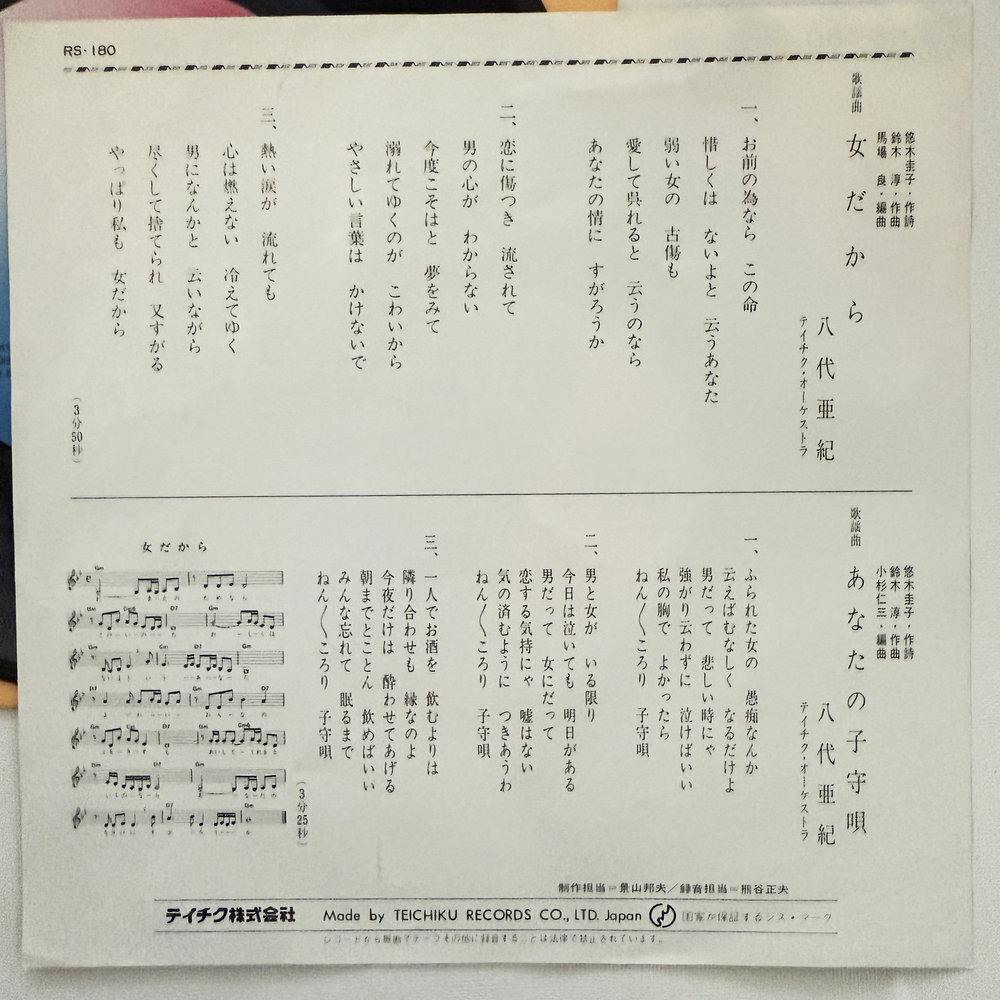 RS-180
歌謡曲
女だから
悠木圭子・作詩
鈴木淳・作曲
馬場良・編曲
八代亜紀
テイチク・オーケストラ
一、お前の為なら この命
惜しくは ないよと 云うあなた
弱い女の 古傷も
愛して呉れると 云うのなら
あなたの情に すがろうか
二、恋に傷つき 流されて
男の心が わからない
今度こそはと 夢をみて
溺れてゆくのが こわいから
やさしい言葉は かけないで
三、熱い涙が 流れても
心は燃えない 冷えてゆく
男になんかと 云いながら
尽くして捨てられ 又すがる
やっぱり私も 女だから
(3分50秒)
歌謡曲
あなたの子守唄
悠木圭子・作詩
鈴木淳・作曲
小杉仁三・編曲
八代亜紀
テイチク・オーケストラ
一、ふられた女の 愚痴なんか
云えばむなしく なるだけよ
男だって 悲しい時にゃ
強がり云わずに 泣けばいい
私の胸で よかったら
ねん〱ころり 子守唄
二、男と女が いる限り
今日は泣いても 明日がある
男だって 女にだって
恋する気持にゃ 嘘はない
気の済むように つきあうわ
ねん〱ころり 子守唄
三、一人でお酒を 飲むよりは
隣り合わせも 縁なのよ
今夜だけは 酔わせてあげる
朝までとことん 飲めばいい
みんな忘れて 眠るまで
ねん〱ころり 子守唄
(3分25秒)
女だから
制作担当=景山邦夫/録音担当=熊谷正夫
テイチク株式会社 Made by TEICHIKU RECORDS CO., LTD. Japan 国家が保証するジス・マーク